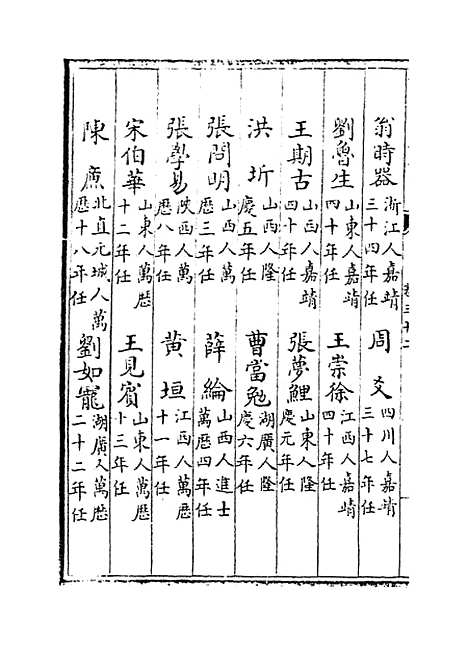 翁時器 浙江人嘉靖三十四年任 周爻 四川人嘉靖三十七年任
劉魯生 山東人嘉靖四十年任 王崇徐 江西人嘉靖四十年任
王期古 山西人嘉靖四十年任 張夢鯉 山東人隆慶元年任
洪圻 山西人隆慶五年任 曹當勉 湖廣人隆慶六年任
張問明 山西人萬歷三年任 薛綸 山西人進士萬歷四年任
張學易 陜西人萬歷八年任 黃垣 江西人萬歷十一年任
宋伯華 山東人萬歷十二年任 王見賓 山東人萬歷十三年任
陳廌 北直元城人萬歷十八年任 劉如寵 湖廣人萬歷二十二年任